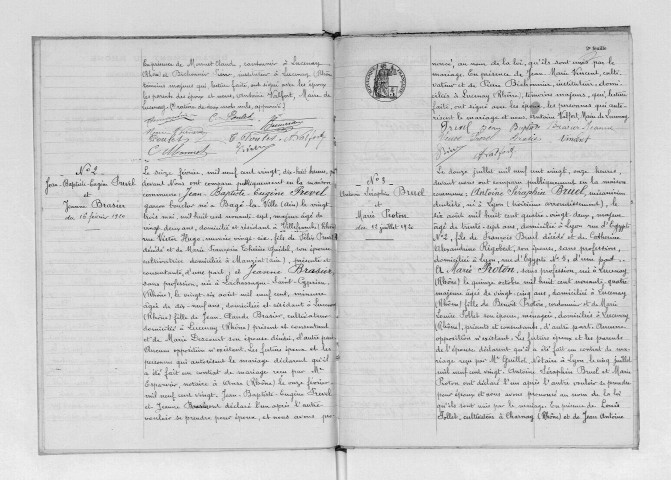 En présence de Monnet Claude, cantonnier à Lucenay
(Rhône) et Bichonnier Pierre, instituteur à Lucenay (Rhône)
témoins majeurs qui lecture faite, ont signé avec les époux
les parents des époux et nous, Antoine Valfort, Maire de
Lucenay
N° 2
Jean-Baptiste Eugène Prevel
et
Jeanne Brasier
du 16 février 1920
Le seize février, mil neuf cent vingt, dix huit heures, par
devant Nous ont comparu publiquement en la maison
commune: Jean-Baptiste-Eugène Prevel
garçon boucher né à Bagé-la-Ville (Ain) le vingt
trois mai, mil huit cent nonante-sept, majeur âgé de
vingt deux ans, domicilié et résidant à Villefranche (Rhône)
rue Victor Hugo, numéro vingt-six, fils de Félix Prevel
décédé et de Marie Françoise
cultivatrice domiciliée à Manziat (Ain), présente et
consentante, d'une part; et Jeanne Brasier
sans profession, née à Lachassagne Saint-Cyprien,
(Rhône), le vingt six août mil neuf cent, mineure
âgée de dix-neuf ans, domiciliée et résidant à Lucenay
(Rhône) fille de Jean Claude Brasier, cultivateur
domicilié à Lucenay (Rhône) présent et consentant
et de Marie son épouse décédée, d'autre part
Aucune opposition n'existant. Les futurs époux et les
personnes qui autorisent le mariage déclarent qu'il
a été fait un contrat de mariage reçu par Me
notaire à Anse (Rhône) le onze février
mil neuf cent vingt. Jean Baptiste-Eugène Prevel
et Jeanne Brasier ont déclaré l'un après l'autre
vouloir se prendre pour époux, et nous avons pro-
2e feuille
noncé, au nom de la loi, qu'ils sont unis par le
mariage. En présence de Jean Marie Vincent, culti-
vateur et de Pierre Bichonnier, instituteur, domi-
ciliés à Lucenay (Rhône), témoins majeurs, qui, lecture
faite, ont signé avec les époux, les personnes qui auto-
risent le mariage et nous, Antoine Valfort, Maire de Lucenay
N° 3
Antoine Séraphin Bruel
et
Marie Proton
du 12 juillet 1920
Le douze juillet mil neuf cent vingt, onze heures,
devant nous ont comparu publiquement en la maison
commune: Antoine Séraphin Bruel, mécanicien
dentiste, né à Lyon (troisième arrondissement), le
dix août mil huit cent quatre-vingt deux, majeur
âgé de trente-sept ans, domicilié à Lyon, rue d'Egypte
N° 2, fils de François Bruel décédé et de Catherine
Alexandrine son épouse, sans profession,
domiciliée à Lyon, rue d'Egypte N° 2, d'une part
Et Marie Proton, sans profession, née à Lucenay
(Rhône) le quinze octobre mil huit cent nonante, quatre
majeure âgée de vingt cinq ans, domiciliée à Lucenay
(Rhône) fille de Benoît Proton, cordonnier et de Marie
Louise Pollet son épouse, ménagère, domiciliés à Lucenay
(Rhône), présents et consentants, d'autre part. Aucune
opposition n'existant. Les futurs époux et les parents
de l'épouse déclarent qu'il a été fait un contrat de ma-
riage reçu par Me Notaire à Lyon, le cinq juillet
mil neuf cent vingt. Antoine Séraphin Bruel et Marie
Proton ont déclaré l'un après l'autre vouloir se prendre
pour époux et nous avons prononcé au nom de la loi
qu'ils sont unis par le mariage. En présence de Louis
Pollet, cultivateur à Charnay (Rhône) et de Jean Antoine